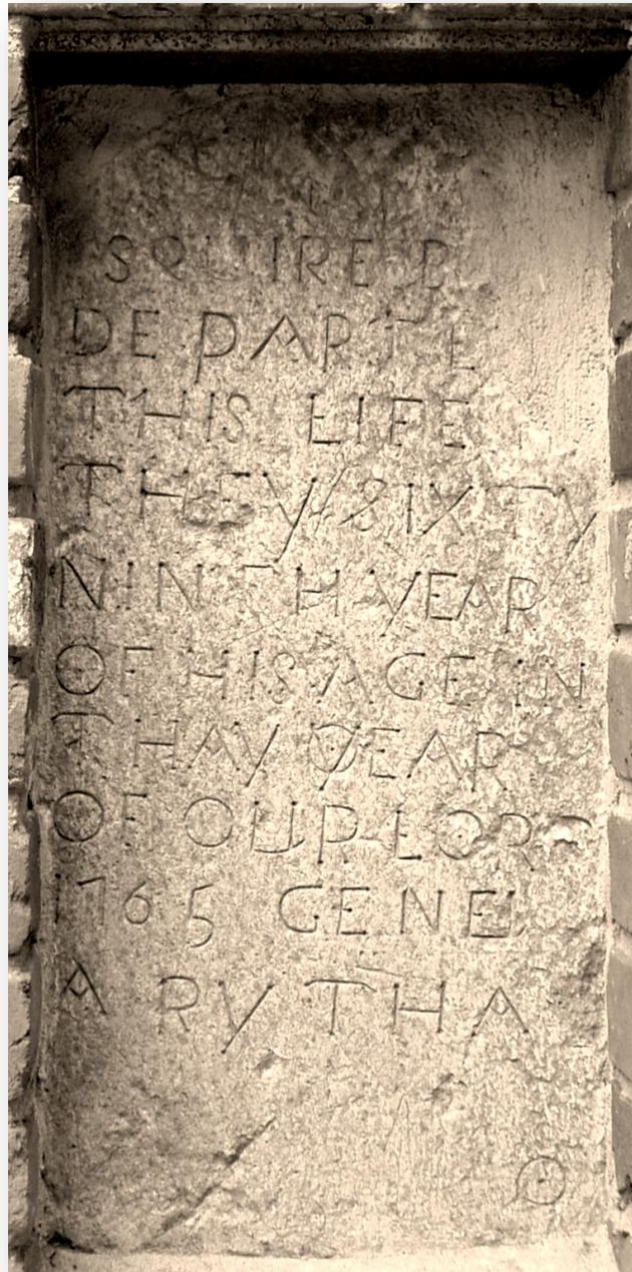 SQUIRE B
DEPARTE
THIS LIFE
THEY SIXTY
NINTH YEAR
OF HIS AGE IN
THAY YEAR
OF OUR LORD
1765 GENE
A RYTHA